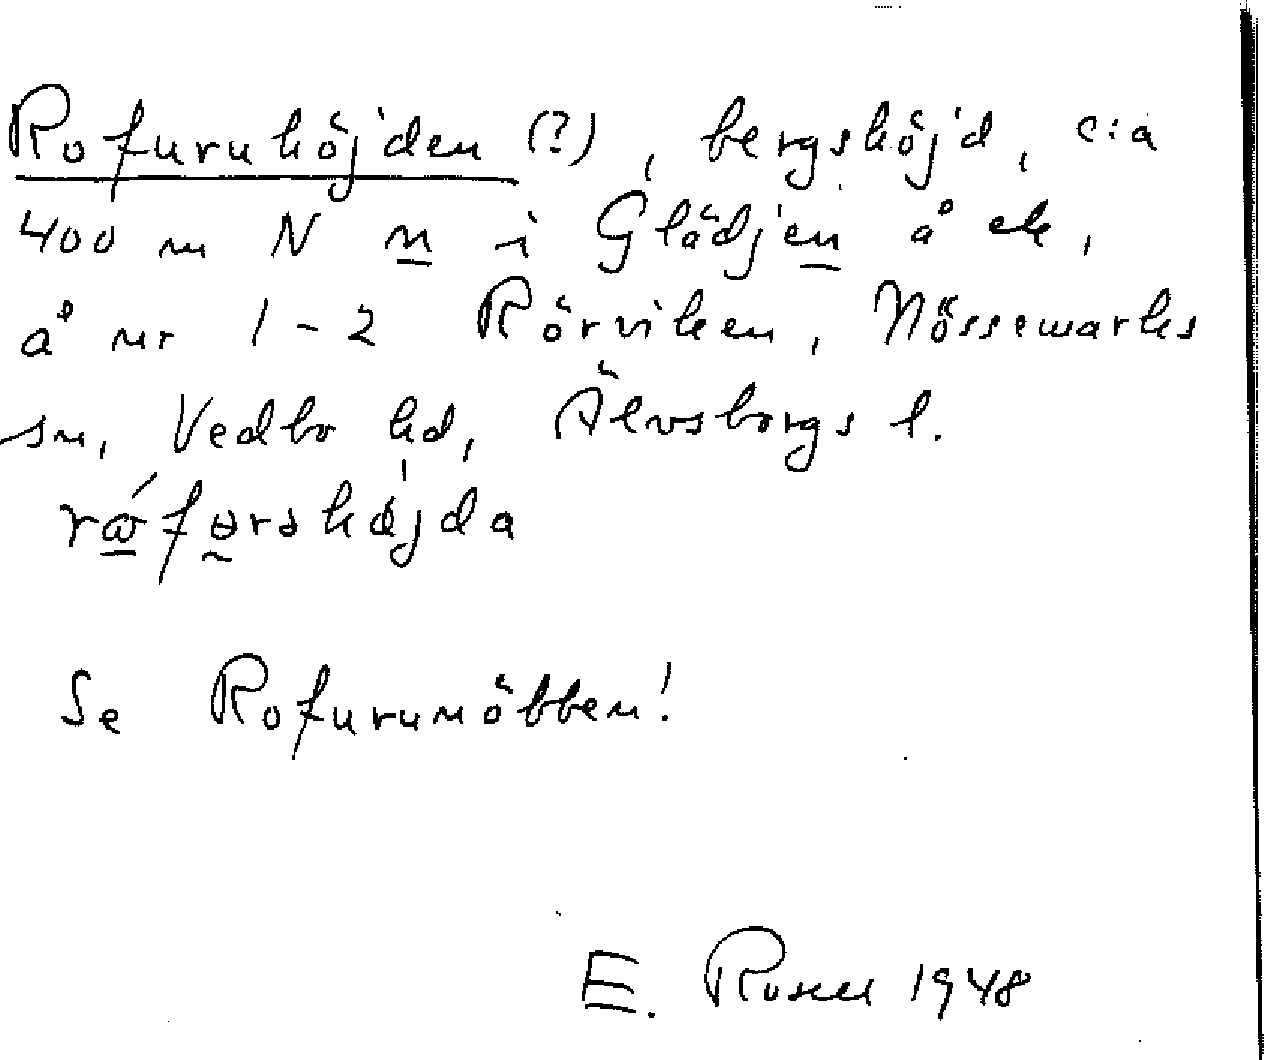 Rofuruhöjden (?), bergshöjd, c:a
400 m N n i Glädjen å ek,
å nr 1-2 Rörviken, Nössemarks
sn, Vedbo hd, Älvsborgs l.
Se Rofurunöbben!
E. Rosell 1948